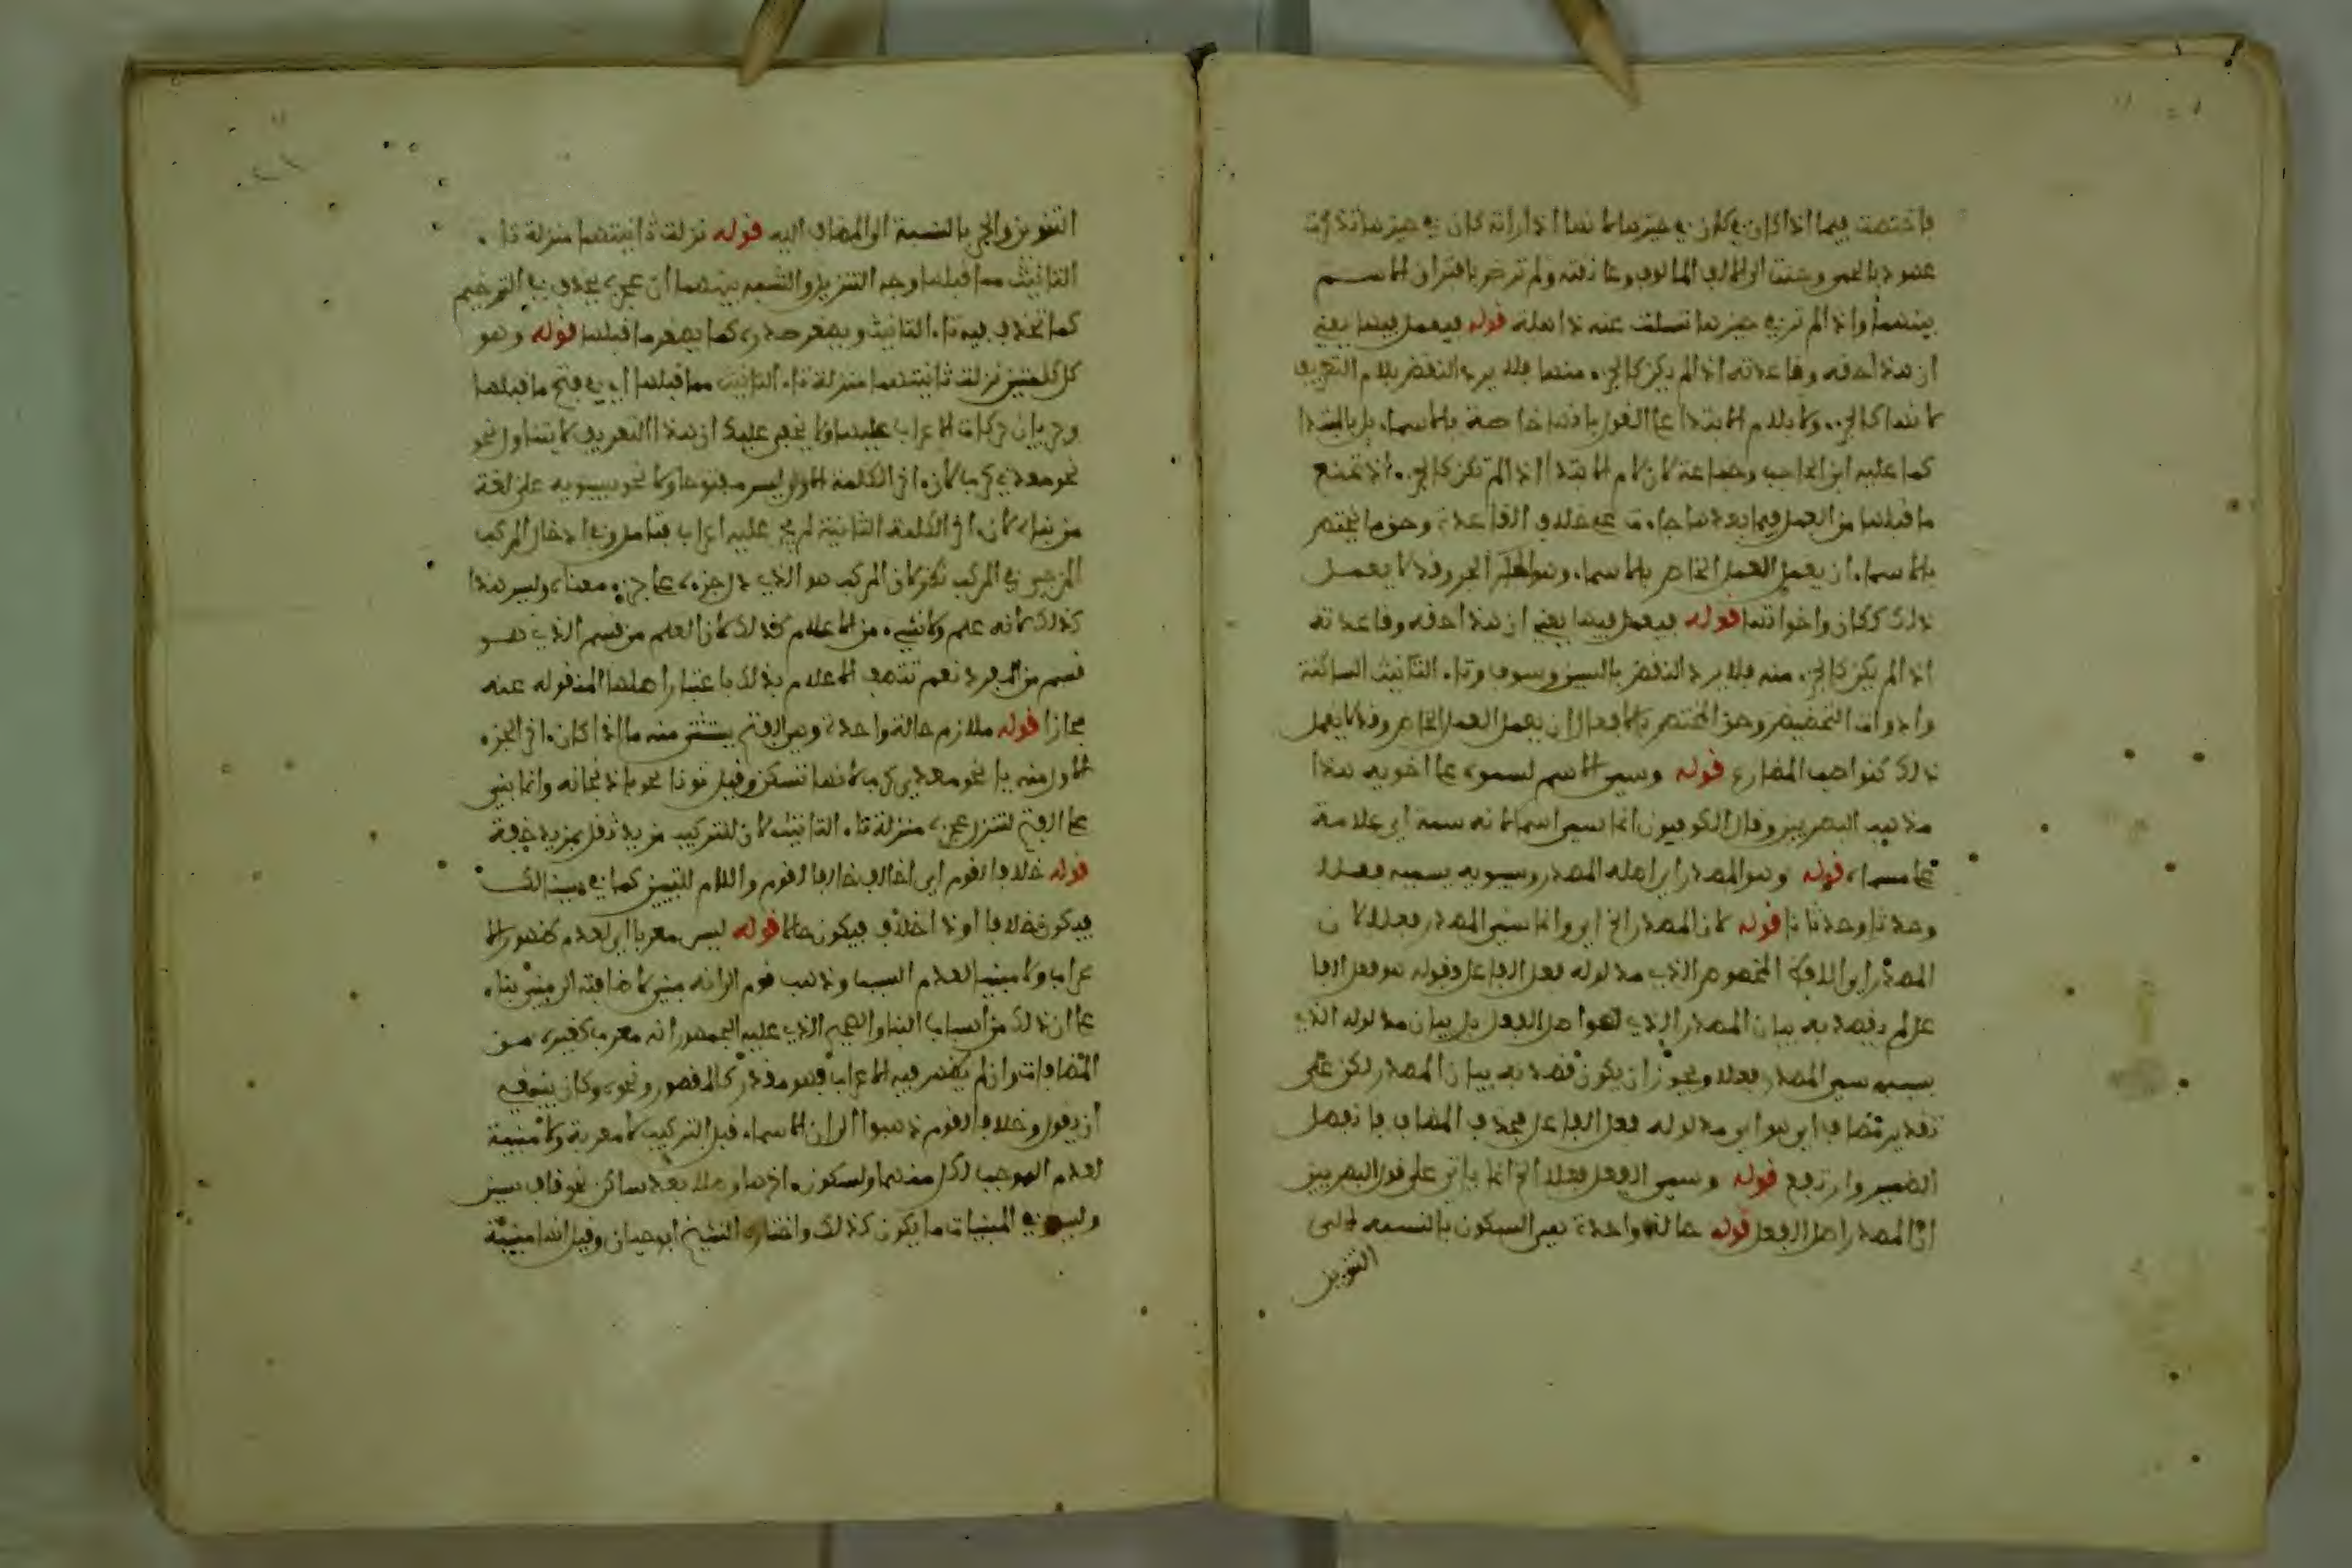 فاختصت فيما اذا كان في حيزها لانها اذا راته كان في حيزها تذكرت
عهودا بالحمى وحنت الى الالف المالوف وعانقته ولم ترض بافتراق الاسم
بينهما واذا لم تره في حيزها تسلت عنه ذاهلة قوله فيعمل فيها يعني
ان هذا حقه وقاعدته اذا لم يكن كالجزء منها فلا يرد النقض بلام التعريف
لانها كالجزء ولا بلام الابتدا على القول بانها خاصة بالاسماء بل بالمبتدا
كما عليه ابن الحاجب وجماعة لان لام الابتدا اذا لم تكن كالجزء اذ تمنع
ما قبلها من العمل فيما بعدها جاءت على خلاف القاعدة وحق ما يختص
بالاسماء ان يعمل العمل الخاص بالاسماء وهو الجر وقد لا يعمل
ذلك ككان واخواتها قوله فيعمل فيها يعني ان هذا حقه وقاعدته
اذا لم يكن كالجزء منه فلا يرد النقض بالسين وسوف وتاء التانيث الساكنة
وادوات التحضيض وحق المختص بالافعال ان يعمل العمل الخاص وقد لا يعمل
ذلك كنواصب المضارع قوله وسمي الاسم لسموه على اخويه هذا
مذهب البصريين وقال الكوفيون انما سمي اسما لانه سمة اي علامة
على مسماه قوله وهو المصدر اي اصله المصدر وسيبويه يسميه فعلا
وحدثا وحدثانا قوله لان المصدر الخ اي وانما سمي المصدر فعلا لان
المصدر اي اللفظ المخصوص الذي مدلوله فعل الفاعل وقوله هو فعل الفا
عل لم يقصد به بيان المصدر الذي هو اصل الفعل بل بيان مدلوله الذي
بسببه سمي المصدر فعلا ويجوز ان يكون قصد به بيان المصدر لكن على
تقدير مضاف اي هو اي مدلوله فعل الفاعل فحذف المضاف فانفصل
الضمير وارتفع قوله وسمي الفعل فعلا الخ انما ياتي على قول البصريين
ان المصدر اصل الفعل قوله حالة واحدة يعني السكون بالنسبة الى
التنوين
التنوين والجر بالنسبة الى المضاف اليه قوله نزلت ثانيتهما منزلة تاء
التانيث مما قبلها وجه التنزيل والتشبيه بينهما ان عجزه يحذف في الترخيم
كما تحذف فيه تاء التانيث ويصغر صدره كما يصغر ما قبلها قوله وهو
كل كلمتين نزلت ثانيتهما منزلة تاء التانيث مما قبلها اي في فتح ما قبلها
وجريان حركات الاعراب عليها ولا يخفى عليك ان هذا التعريف لا يتناول نحو
نحو معدي كرب لان اخر الكلمة الاولى ليس مفتوحا ولا نحو سيبويه على لغة
من بناه لان اخر الكلمة الثانية لم يجر عليه اعراب فتامل وفي ادخال المركب
المزجي في المركب نظر لان المركب هو الذي دل جزءه على جزء معناه وليس هذا
كذلك لانه علم ولا شيء من الاعلام كذلك لان العلم من قسم الذي هو
قسم من المفرد نعم تتصف الاعلام بذلك باعتبار اصلها المنقولة عنه
مجازا قوله ملازم حالة واحدة وهي الفتح يستثنى منه ما اذا كان اخر الجزء
الاول منه ياء نحو معدي كرب لانها تسكن وقيل نونا نحو باذنجانه وانما بني
على الفتح لتنزل عجزه منزلة تاء التانيث لان للتركيب مزيد ثقل بمزيد خفة
قوله خلافا لقوم اي اخالف خلافا لقوم واللام للتبيين كما في هيت لك
فيكون خلافا او ذا خلاف فيكون حالا قوله ليس معربا اي لعدم ظهور الا
عراب ولا مبنيا لعدم السبب وذهب قوم الى انه مبني لاضافته الى مبني بناء
على ان ذلك من اسباب البنا والصحيح الذي عليه الجمهور انه معرب كغيره من
المضافات وان لم يظهر فيه الاعراب فهو مقدر كالمقصور ونحوه وكان ينبغي
ان يقول وخلافا لقوم ذهبوا الى ان الاسماء قبل التركيب لا معربة ولا مبنية
لعدم الموجب لكل منهما ولسكون اخرها وصلا بعد ساكن نحو قاف سين
وليس في المبنيات ما يكون كذلك واختاره الشيخ ابو حيان وقيل انها مبنية